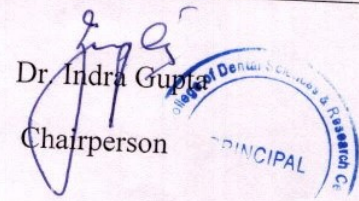 Dr. Indra Gupta
Chairperson
ollege of Dental Sciences & Research Ce
PRINCIPAL